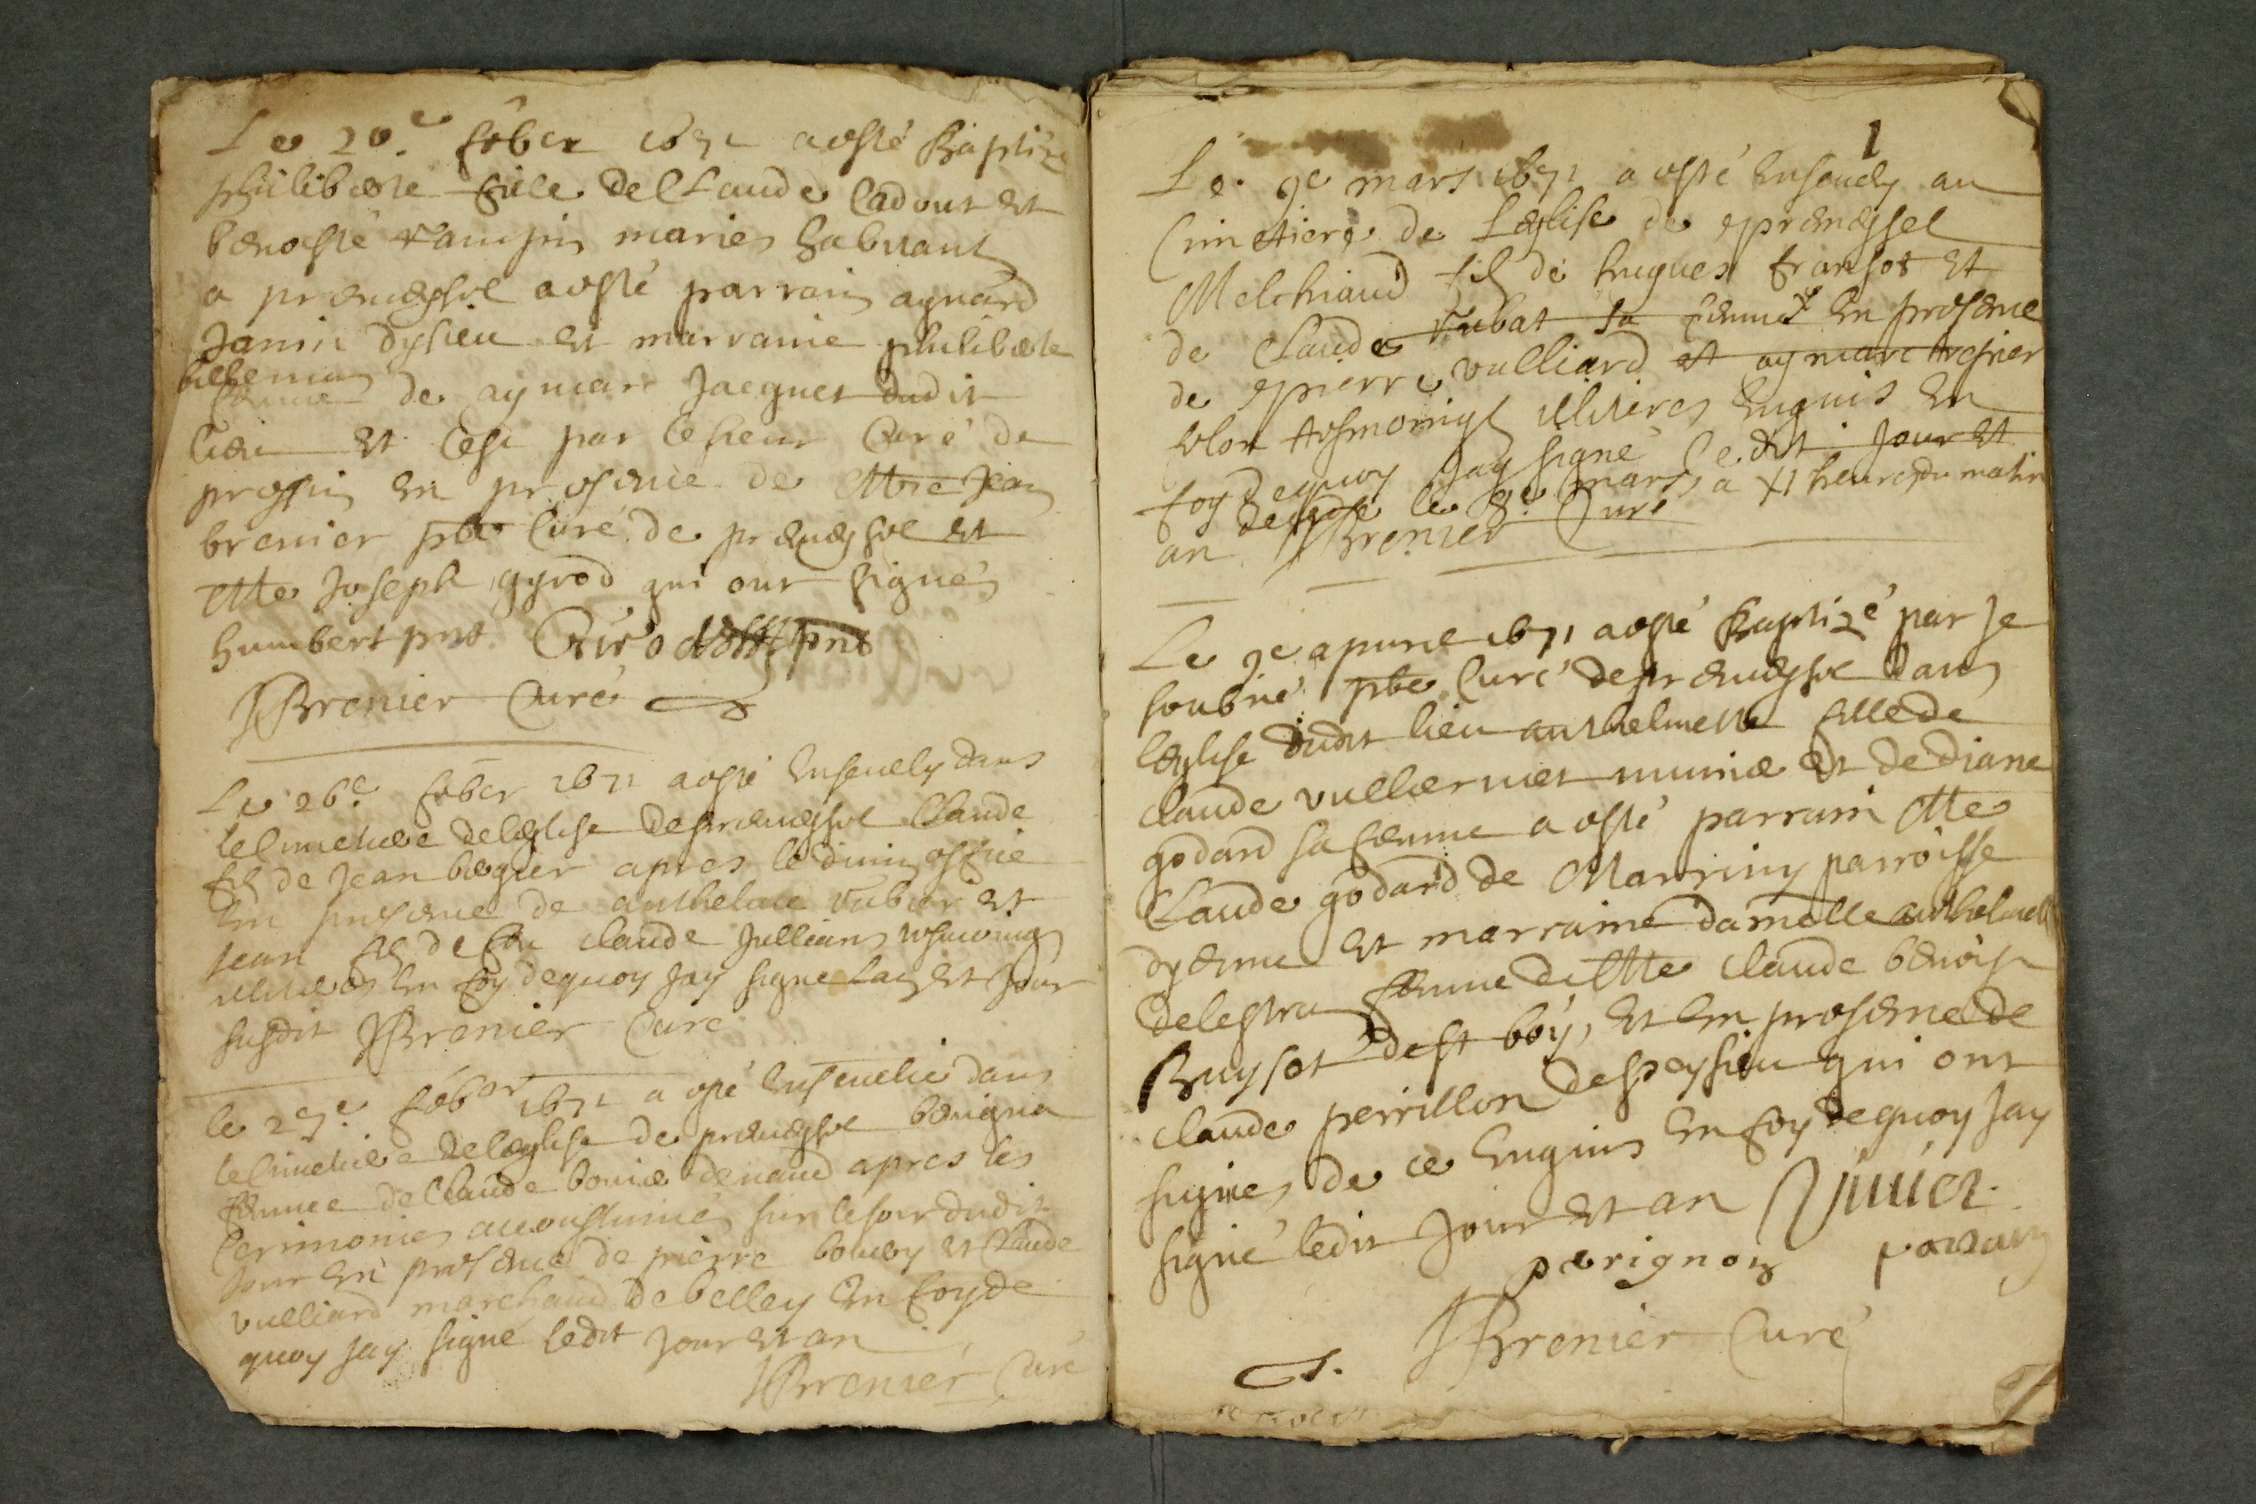 Le 20e feber 1671 a esté Baptizé
philiberte fille de Claude Cadout et
benoiste rampin mariés habitant
a premeysel a esté parrain aynard
Janin dysieu et marraine philiberte
femme de aymar Jacquet dudit
lieu et cest par le sieur Curé de
pressin en presence de Mre Jean
brenier pbre Curé de premeysel et
Me Joseph gyrod qui ont signés
humbert pnt. Girod pnt
JBrenier Curé
Le 26e feber 1671 a esté Ensevely dans
le Cimetiere de leglise de premeysel Claude
fils de Jean begier apres le divin office
En presence de anthelme Rubat et
Jean fils de feu claude Jullian tesmoings
illiteres En foy dequoy Jay signé Lan et Jour
susdit JBrenier Curé
le 27e feber 1671 a esté Ensevelie dans
le Cimetiere de leglise de premeysel benigna
femme de Claude bovie apres les
Cerimonies accoustumés sur le soir dudit
Jour En presence de pierre bovey et Claude
vulliard marchand de belley En foy de
quoy Jay signé ledit Jour et an
JBrenier Curé
1
Le 9e mars 1671 a esté Ensevely au
Cimetiere de Leglise de premeyssel
Melchiaud fils de hugues fransot et
de Claude Rubat sa femme En presence
de pierre vulliard et aymar
tesmoings illiteres Enquis En
foy dequoy Jay signé le dit Jour et
decedé le 8e mars a XI heures du matin
an JBrenier Curé
Le 9e apvril 1671 a esté Baptizé par Je
soubné pbre Curé de premeysel dans
leglise dudit lieu anthelmette fille de
claude vulliermet munié et de diane
godard sa femme a esté parrain Me
Claude godard de Marriny parroisse
dyenne et marraine damelle anthelmette
delestra femme de Me claude benoist
Buysot de st boy, et En presence de
claude perrillon despeysieu qui ont
signés de ce Enquis En foy dequoy Jay
signé ledit Jour et an Vivier
perignon parain
JBrenier Curé